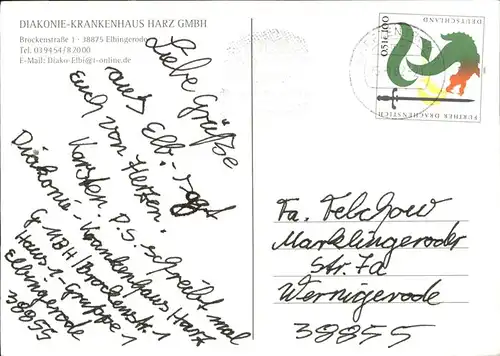 DIAKONIE-KRANKENHAUS HARZ GMBH
Brockenstraße 1 · 38875 Elbingerode
Tel. 039454/82000
E-Mail: Diako-Elbi@t-online.de
Liebe Grüße
aus Elbi- sagt
Euch von Herzen
Karsten. P.S. schreibt mal
Diakonie-Krankenhaus Harz
GMBH/Brockenstr. 1
Haus 1-Gruppe 1
Elbingerode
38855
DEUTSCHLAND
0,51 € 100
FURTHER DRACHENSTICH
Fa. Felchow
Marklingeroder
Str. 7a
Wernigerode
38855